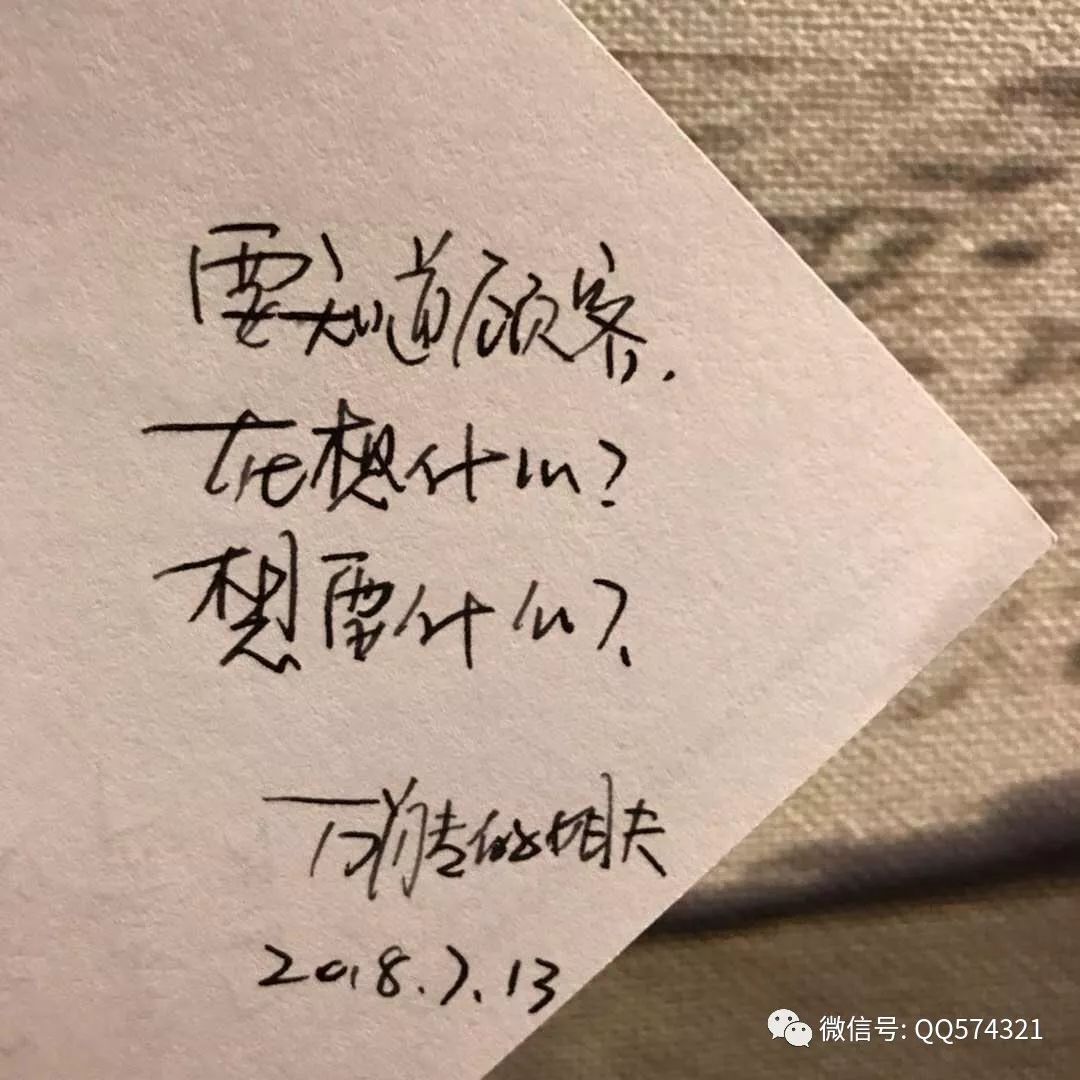 要知道顾客.
在想什么?
想要什么?.
2018.7.13
微信号: QQ574321